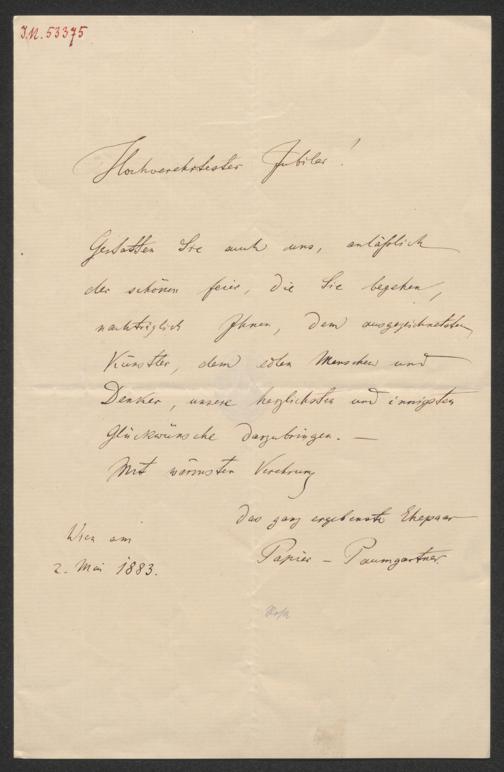 I.N. 53375
Hochverehrtester Jubilar!
Gestatten Sie auch uns, anläßlich
der schönen Feier, die Sie begehen,
nachträglich Ihnen, dem ausgezeichnetsten
Künstler, dem edlen Menschen und
Denker, unsere herzlichsten und innigsten
Glückwünsche darzubringen. —
Mit wärmsten Verehrung
das ganz ergebenste Ehepaar
Papier – Paumgartner.
Wien am
2. Mai 1883.